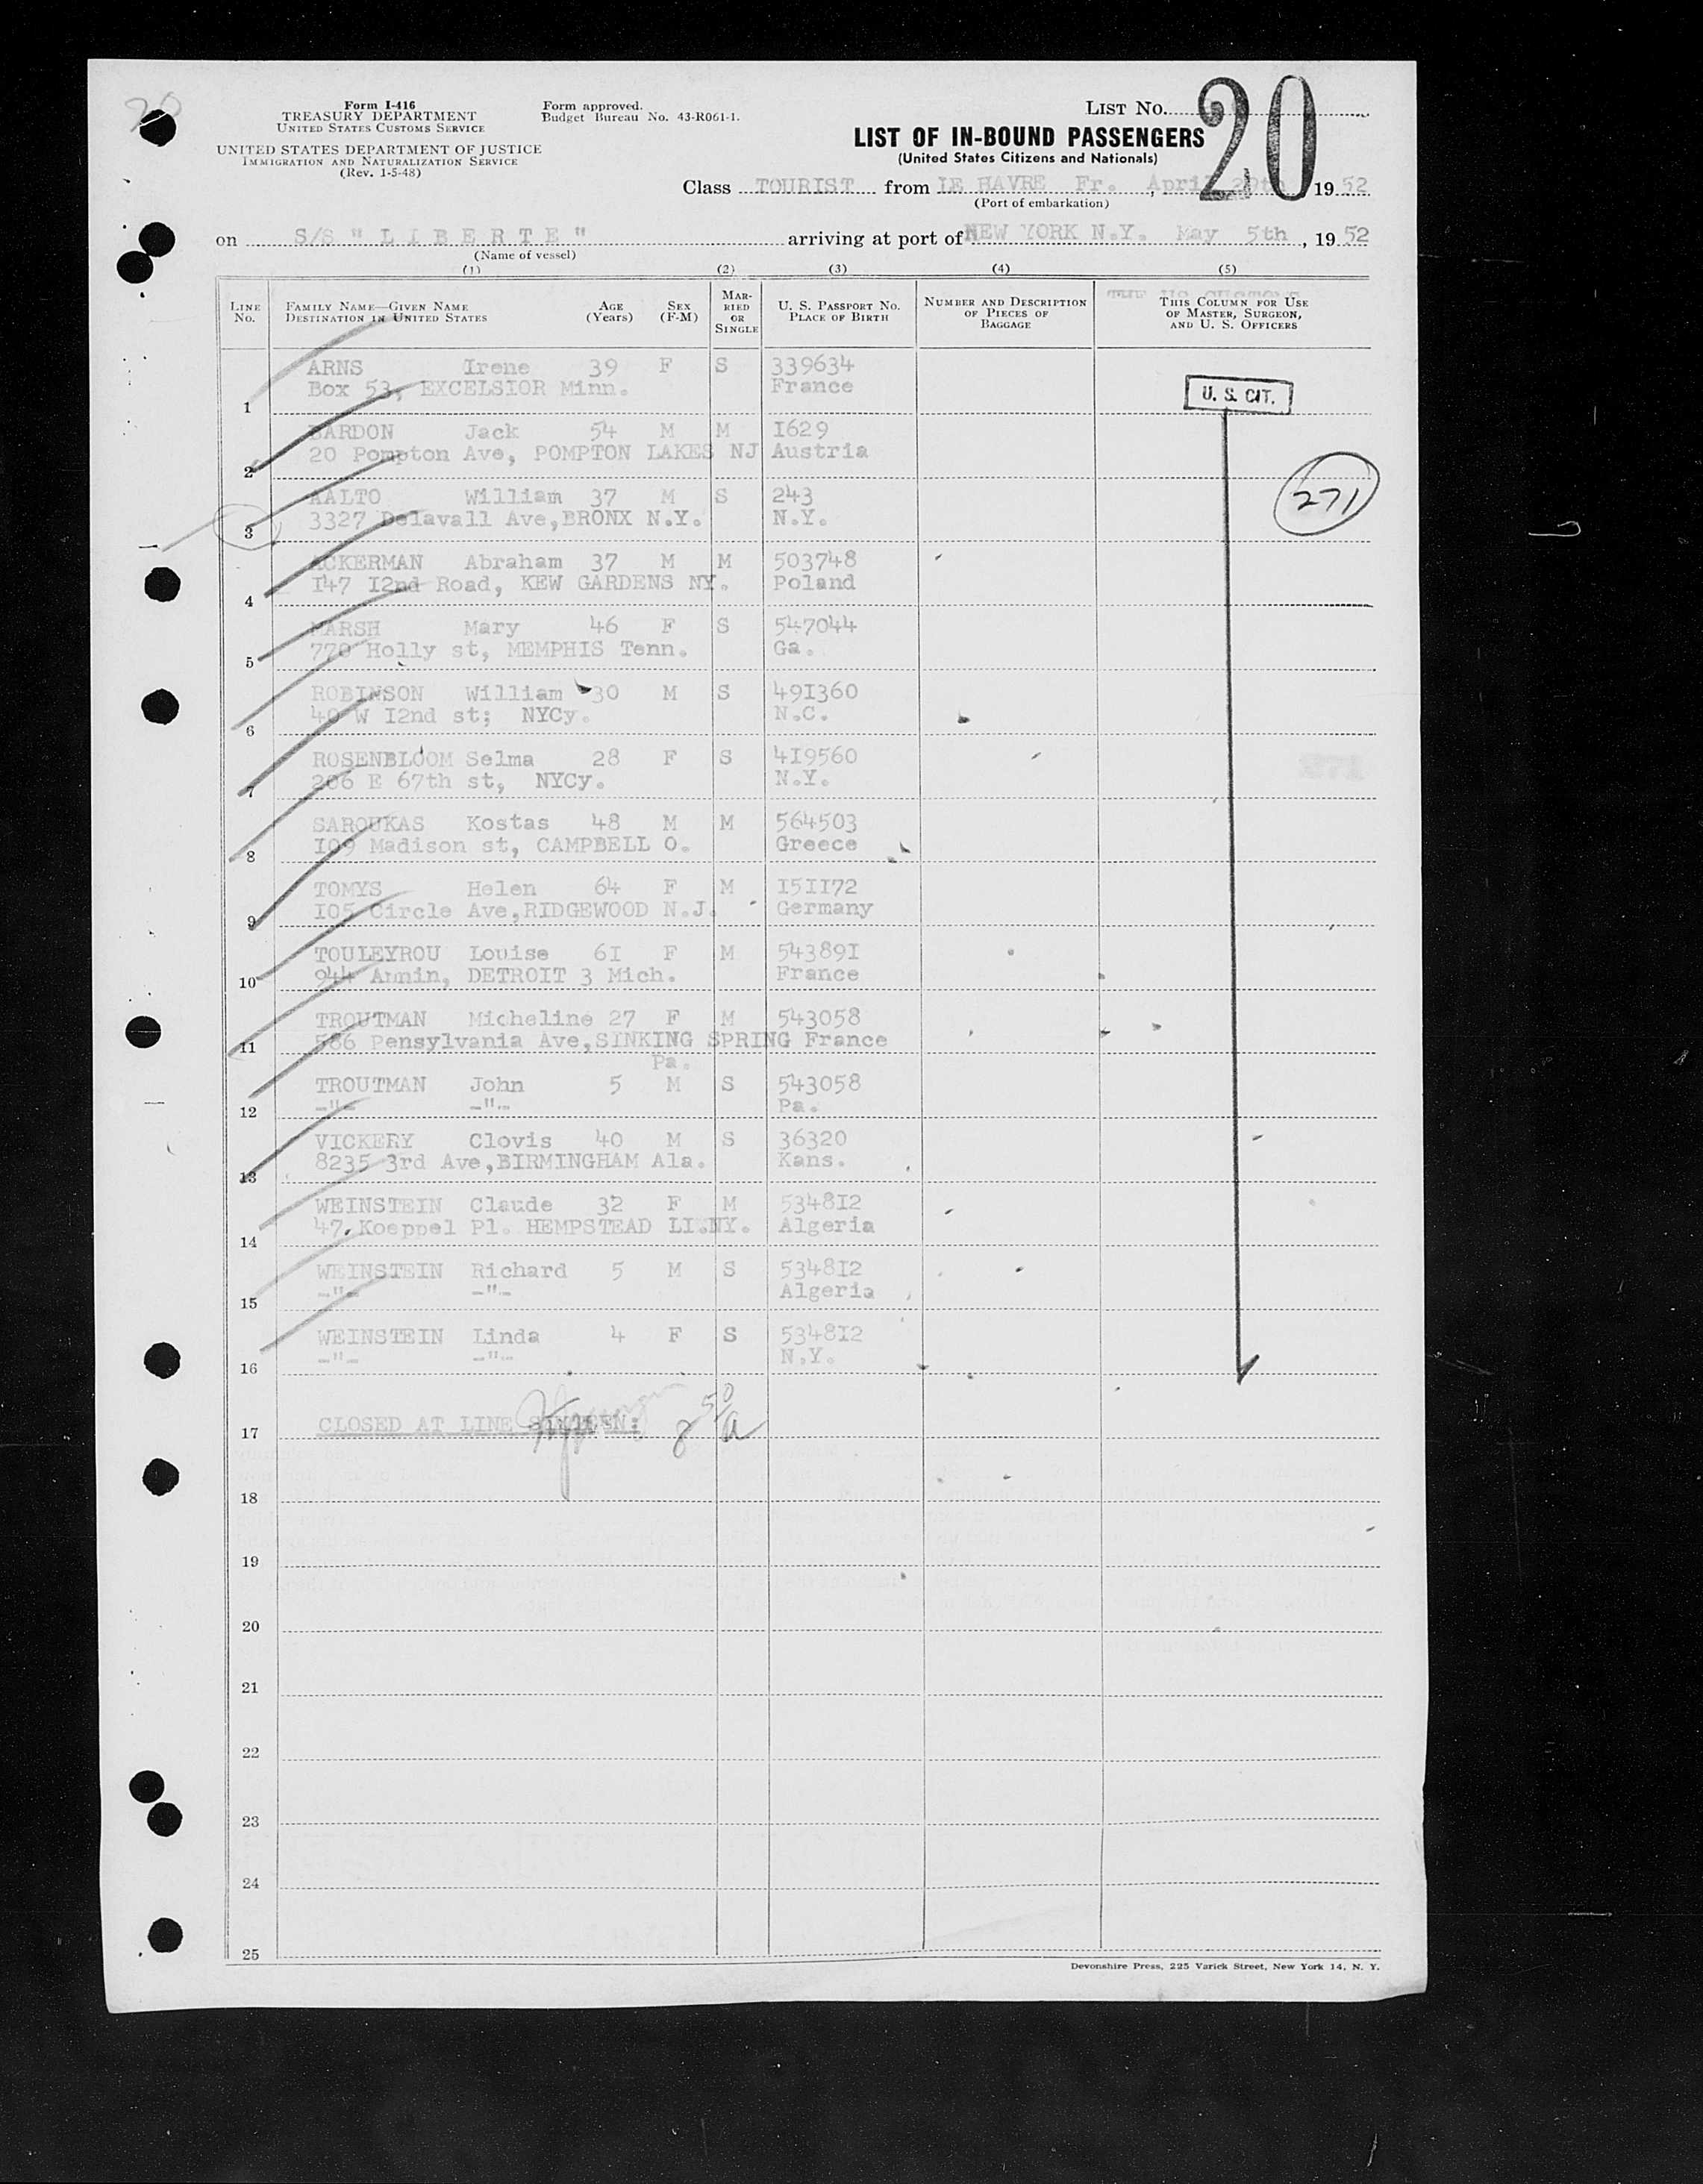 20
Form I-416
TREASURY DEPARTMENT
UNITED STATES CUSTOMS SERVICE
UNITED STATES DEPARTMENT OF JUSTICE
IMMIGRATION AND NATURALIZATION SERVICE
(Rev. 1-5-48)
Form approved.
Budget Bureau No. 43-R061-1.
LIST No. 20
LIST OF IN-BOUND PASSENGERS
(United States Citizens and Nationals)
Class TOURIST from LE HAVRE Fr., April 1952
(Port of embarkation)
on S/S " L I B E R T E " arriving at port of NEW YORK N.Y. May 5th, 1952
(Name of vessel)
(1) (2) (3) (4) (5)
LINE No. FAMILY NAME—GIVEN NAME DESTINATION IN UNITED STATES AGE (Years) SEX (F-M) MARRIED OR SINGLE U. S. PASSPORT No. PLACE OF BIRTH NUMBER AND DESCRIPTION OF PIECES OF BAGGAGE THIS COLUMN FOR USE OF MASTER, SURGEON, AND U. S. OFFICERS
ARNS Irene 39 F S 339634
1 Box 53, EXCELSIOR Minn. France
U. S. CIT.
BARDON Jack 54 M M I629
2 20 Pompton Ave, POMPTON LAKES NJ Austria
AALTO William 37 M S 243
271
3 3327 Delavall Ave,BRONX N.Y. N.Y.
ACKERMAN Abraham 37 M M 503748
4 I47 I2nd Road, KEW GARDENS NY. Poland
MARSH Mary 46 F S 547044
5 770 Holly st, MEMPHIS Tenn. Ga.
ROBINSON William 30 M S 49I360
6 40 W I2nd st; NYCy. N.C.
ROSENBLOOM Selma 28 F S 4I9560
7 206 E 67th st, NYCy. N.Y.
271
SAROUKAS Kostas 48 M M 564503
8 I09 Madison st, CAMPBELL O. Greece
TOMYS Helen 64 F M I5II72
9 I05 Circle Ave,RIDGEWOOD N.J. Germany
TOULEYROU Louise 6I F M 54389I
10 944 Annin, DETROIT 3 Mich. France
TROUTMAN Micheline 27 F M 543058
11 586 Pensylvania Ave,SINKING SPRING France
Pa.
TROUTMAN John 5 M S 543058
12 -"- -"- Pa.
VICKERY Clovis 40 M S 36320
13 8235 3rd Ave,BIRMINGHAM Ala. Kans.
WEINSTEIN Claude 32 F M 5348I2
14 47, Koeppel Pl. HEMPSTEAD LI.NY. Algeria
WEINSTEIN Richard 5 M S 5348I2
15 -"- -"- Algeria
WEINSTEIN Linda 4 F S 5348I2
16 -"- -"- N.Y.
17 CLOSED AT LINE SIXTEEN: 8 50/a
18
19
20
21
22
23
24
25
Devonshire Press, 225 Varick Street, New York 14, N. Y.